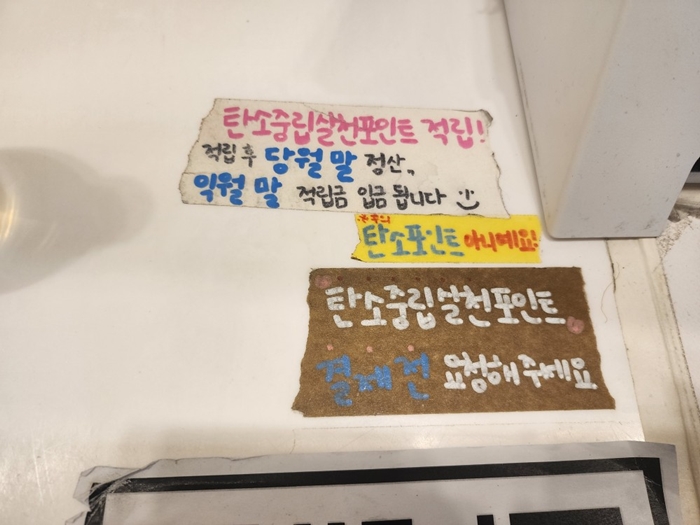 탄소중립실천포인트 적립!
적립 후 당월 말 정산,
익월 말 적립금 입금 됩니다
탄소포인트 아니예요!
탄소중립실천포인트
결제 전 요청해주세요